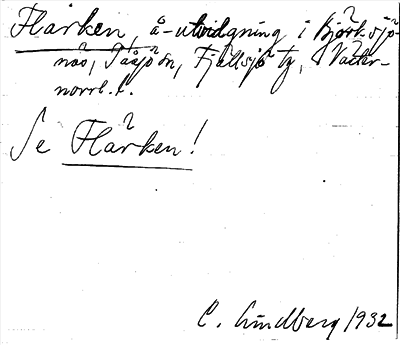 Flärken, å-utvidgning i Björksjö-
näs, Tåsjö sn, Fjällsjö tg, Väster-
norrl. l.
Se Flärken!
C. Lindberg 1932